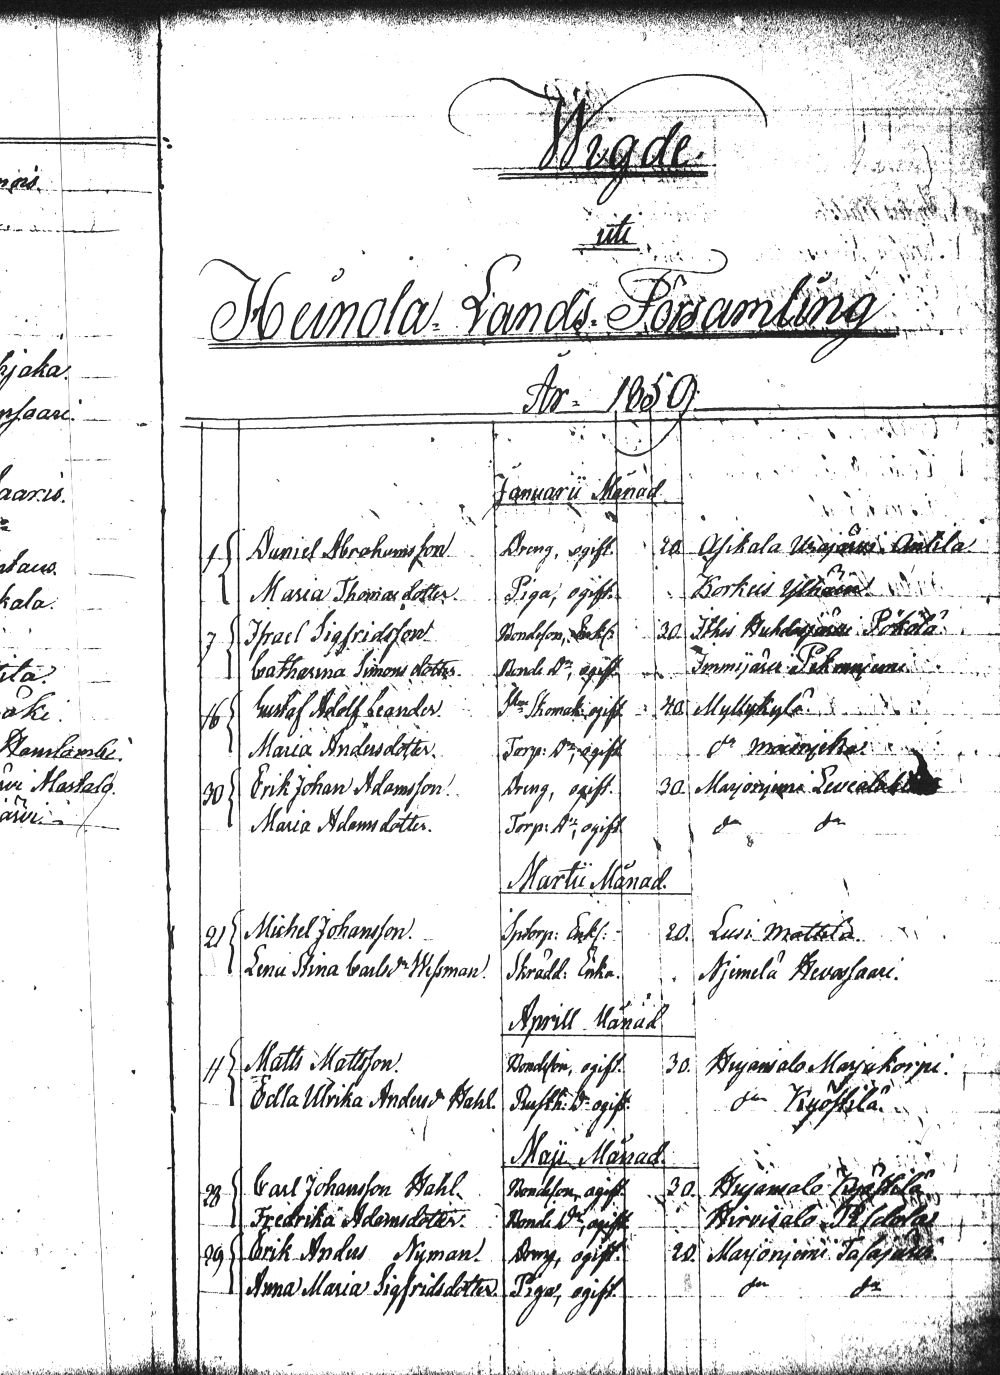 nnis.
kjaka.
nsaari.
saaris.
kala.
Hamlambi.
Mastalo.
järvi.
Wigde.
uti
Heinola Lands Församling
År 1859.
Januarii Månad.
1 Daniel Abrahamsson Dreng, ogift. 20. Asikala Urajärvi Anttila
Maria Thomasdotter. Piga, ogift. Korkeis
7 Israel Sigfridsson Bondeson, Enkl: 30. Pökölä
Catharina Simonsdotter. Bonde Dr, ogift. Immijärvi
16 Gustaf Adolf Leander. Skomak: ogift. 40. Myllykylä
Maria Andersdotter. Torp: Dr, ogift. do
30 Erik Johan Adamsson. Dreng, ogift. 30. Marjoniemi
Maria Adamsdotter. Torp: Dr, ogift. do do
Martii Månad.
21 Michel Johansson. Enkl: 20. Lusi Mattila
Lena Stina Carlsdr Wessman. Skrädd: Enka. Njemelä Hevossaari.
Aprill Månad
11 Matts Mattsson. Bondeson, ogift. 30. Hujansalo Marjakorpi.
Edla Ulrika Andersdr Hahl. Rusth: Dr ogift. do Kyöstilä.
Maji Månad.
28 Carl Johansson Hahl. Bondeson, ogift. 30. Hujansalo Kyöstilä
Fredrika Adamsdotter. Bonde Dr, ogift. Hirvisalo
29 Erik Anders Nyman. Dreng, ogift. 20. Marjoniemi
Anna Maria Sigfridsdotter. Piga, ogift. do do